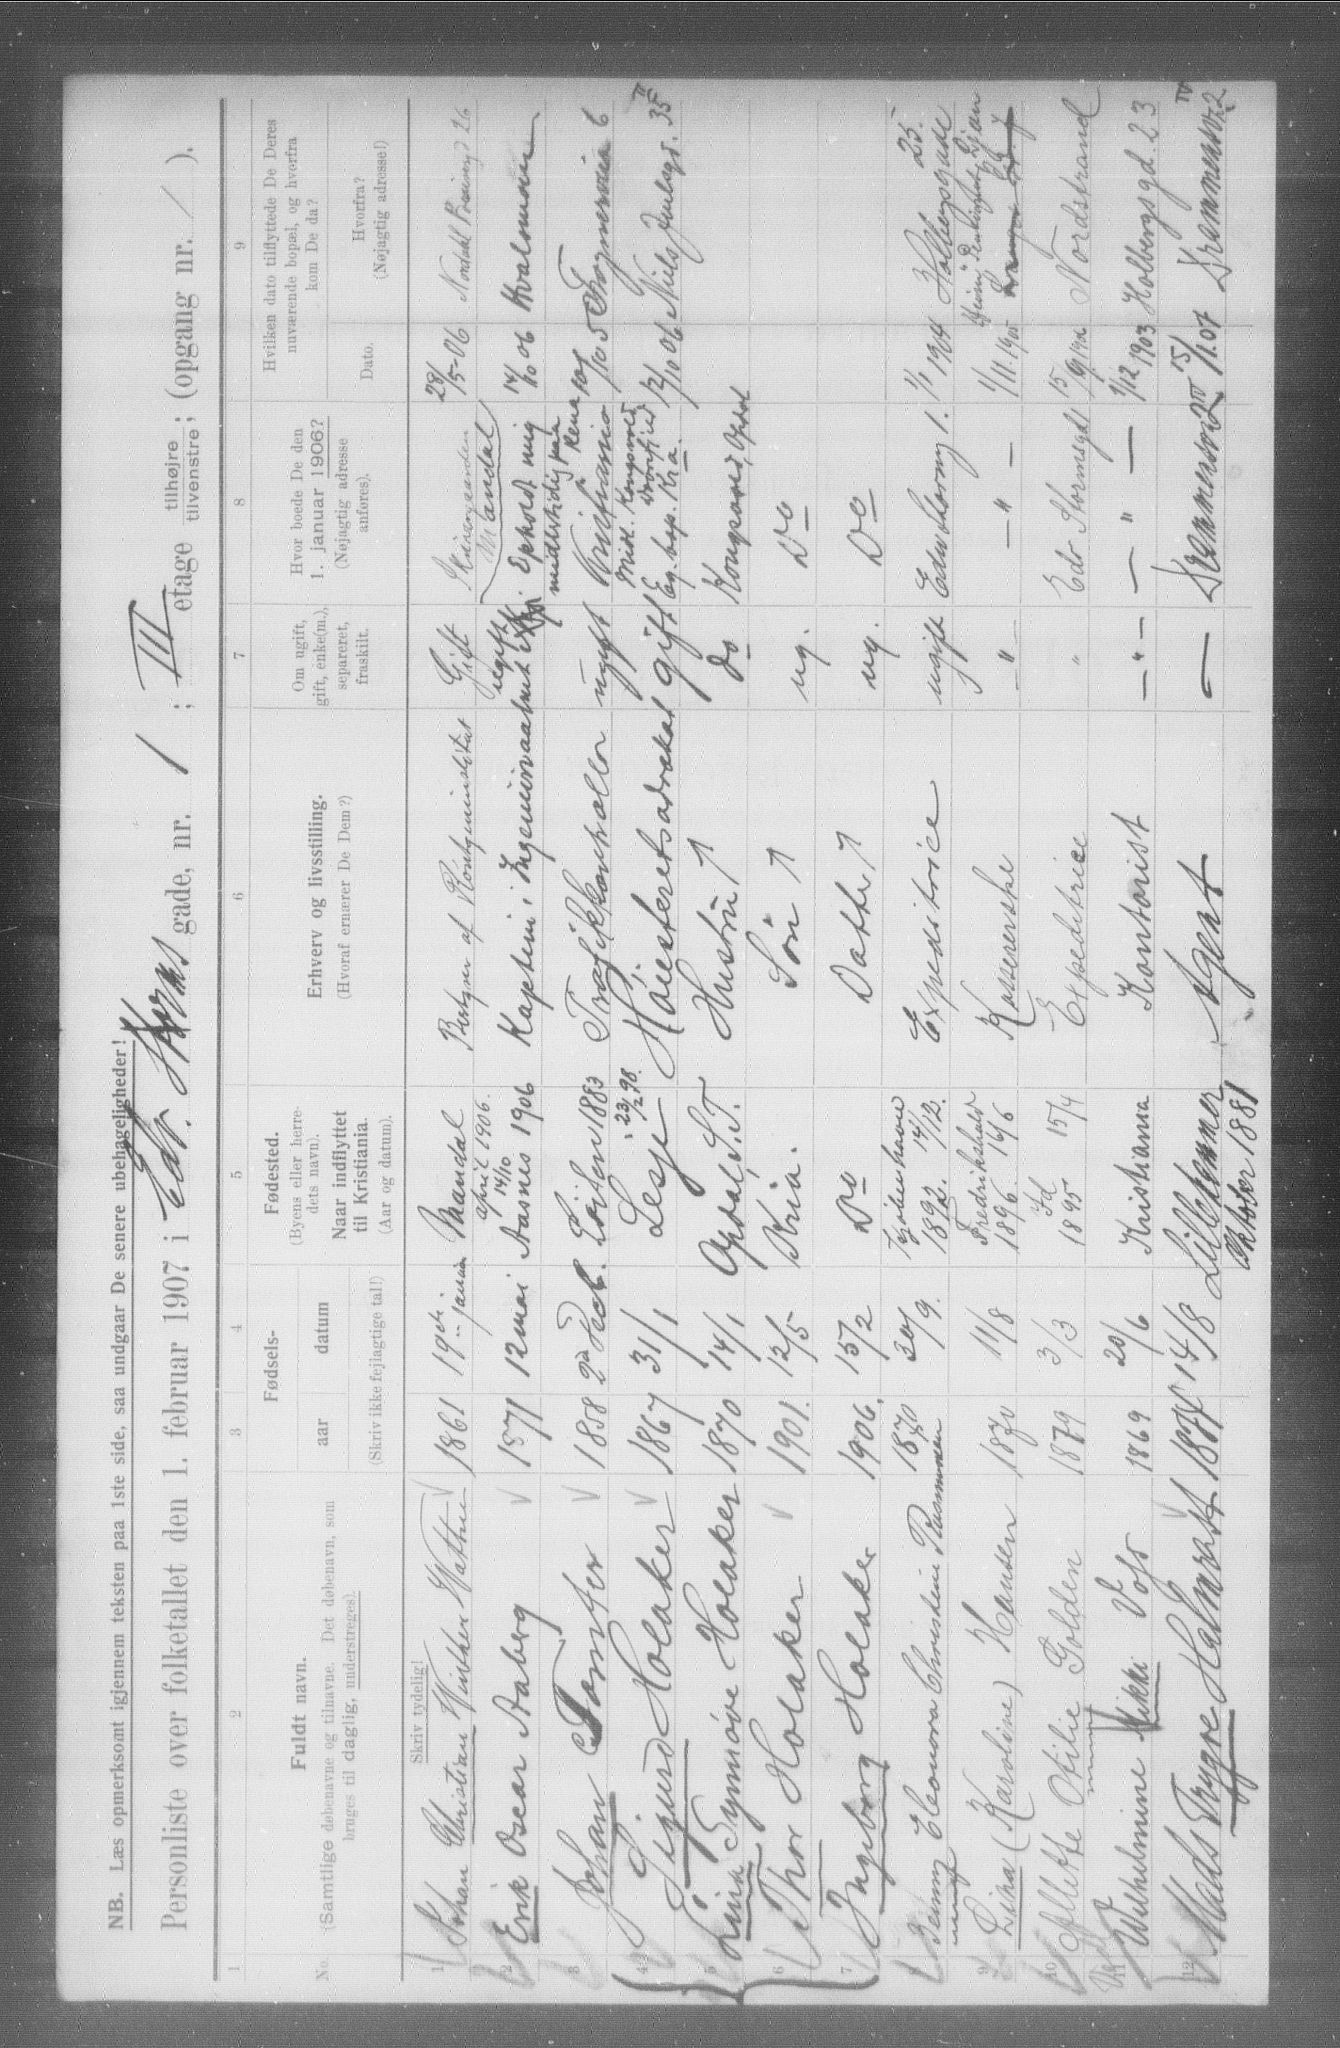 NB. Læs opmerksomt igjennem teksten paa 1ste side, saa undgaar De senere ubehageligheder!
Personliste over folketallet den 1. februar 1907 i Edv. Storms gade, nr. 1 ; III etage tilhøjre tilvenstre; (opgang nr. / ).
1 2 3 4 5 6 7 8 9
No.
Fuldt navn.
(Samtlige døbenavne og tilnavne. Det døbenavn, som
bruges til daglig, understreges).
Fødsels-
aar datum
(Skriv ikke fejlagtige tal!)
Fødested.
(Byens eller herre-
dets navn).
Naar indflyttet
til Kristiania.
(Aar og datum).
Erhverv og livsstilling.
(Hvoraf ernærer De Dem?)
Om ugift,
gift, enke(m.),
separeret,
fraskilt.
Hvor boede De den
1. januar 1906?
(Nøjagtig adresse
anføres).
Hvilken dato tilflyttede De Deres
nuværende bopæl, og hvorfra
kom De da?
Dato.
Hvorfra?
(Nøjagtig adresse!)
Skriv tydelig!
1 Johan Christian Winther 1861 19de januar Mandal april 1906. Bestyrer af Röntgeninstitut Gift Mandal 28/5-06
2 Erik Oscar Staberg 1871 12 mai Aasnes 14/10 1906 Kaptein i Ingeniørvaabnet ugift Opholdt mig midlertidig paa Rena 14/10 06
3 Johan 1858 Løiten 1883 Trafikkontrollør ugift Kristiania 10/10 5 Frognerveien 6
4 Sigurd Holaker 1867 31/1 Lesje 23/2 98. Høiesteretsadvokat gift Eg. bop. Kra. 12/10 06 Niels Juelsgt. 35 II
5 Lina Synnøve Holaker 1870 14/1 Opdal, S.T. Hustru do Kongsvold, Opdal
6 Thor Holaker 1901. 12/5 Kria. Søn ug. Do
7 Ingeborg Holaker 1906. 15/2 Do Datter ug. Do
8 Benny Eleonora Christine Rasmussen 1870 30/9. Kjøbenhavn 1892. 14/12. Expeditrice ugift Edv. Stormsg 1. 1/1 1904 Holbergsgade 25.
9 (Karoline) Hansen 1870 11/8 Fredrikshald 1896. 16/6 Kassererske — " — — " — 1/11. 1905
10 Otilie Golden 1879 3/3 1895 15/4 Expeditrice " Edv Stormsgd 1 15/9 Nordstrand
11 Wilhelmine Mikki Voss 1869 20/6 Kristiania Kontorist — " — — " — 1/12 1903 Holbergsgd. 23
12 Mads Trygve 14/8 Lillehammer Oktober 1881 Agent — Drammensv. 2 IV 15/1.07 Drammensv. 2 IV